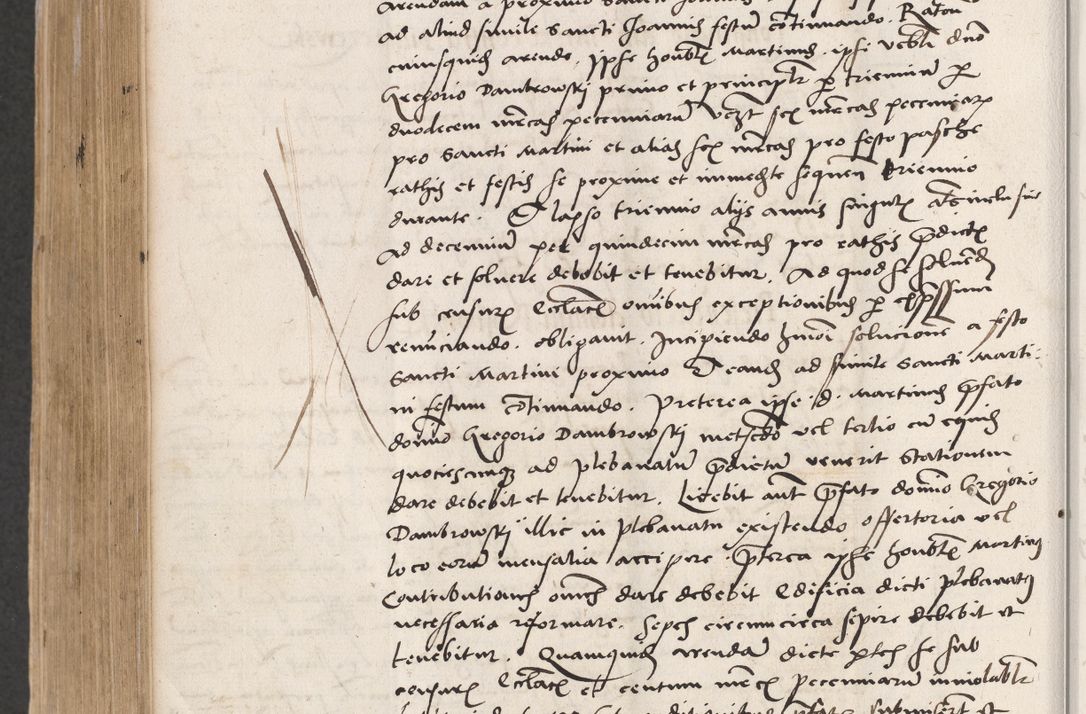 arendam a proximo sancti Joannis
ad aliud simile Sancti Joannis festum continuando. Ration
cuiusquidem arende, ipse honbl Martinus ipsi vebli dno
Gregorio Dambrowskj primo et principlr per triennium per
duodecem mrcas pecuniarum vezt sex mrcas pecuniarum
pro Sancti Martini et alias sex mrcas pro festo pasche
rathis et festis se proxime et immedte sequen triennio
durante. Elapso triennio alijs annis singulis
ad decennium per quindecim mrcas pro rathis predictis
dare et soluere debebit et tenebitur. Ad quod se soluend
sub censuris Ecclesiasticis omnibus exceptionibus per
renunciando. obligauit. Incipiendo hmoi solucionem a festo
Sancti Martini proximo Et eand ad simile Sancti Marti
ni festum continuando. Preterea ipse d. Martinus prefato
domino Gregorio Dambrowskj metsedo vel tertio cum equis
quociescunque ad plebanatum predictum venerit stationem
dare debebit et tenebitur. Licebit aut prefato domino Gregorio
Dambrowskj illic in plebanatu existendo offertoria vel
loco eorum mensalia accipere. preterea ipse honbl Martinus
Contributiones omnes dare debebit Edificia dicti plebanatus
necessaria reformare. Sepes circumcirca sepire debebit et
tenebitur. Quamquidem arendam dicte partes se sub
censuris Ecclesiasticis et centum mrcis pecuniarum inviolablr